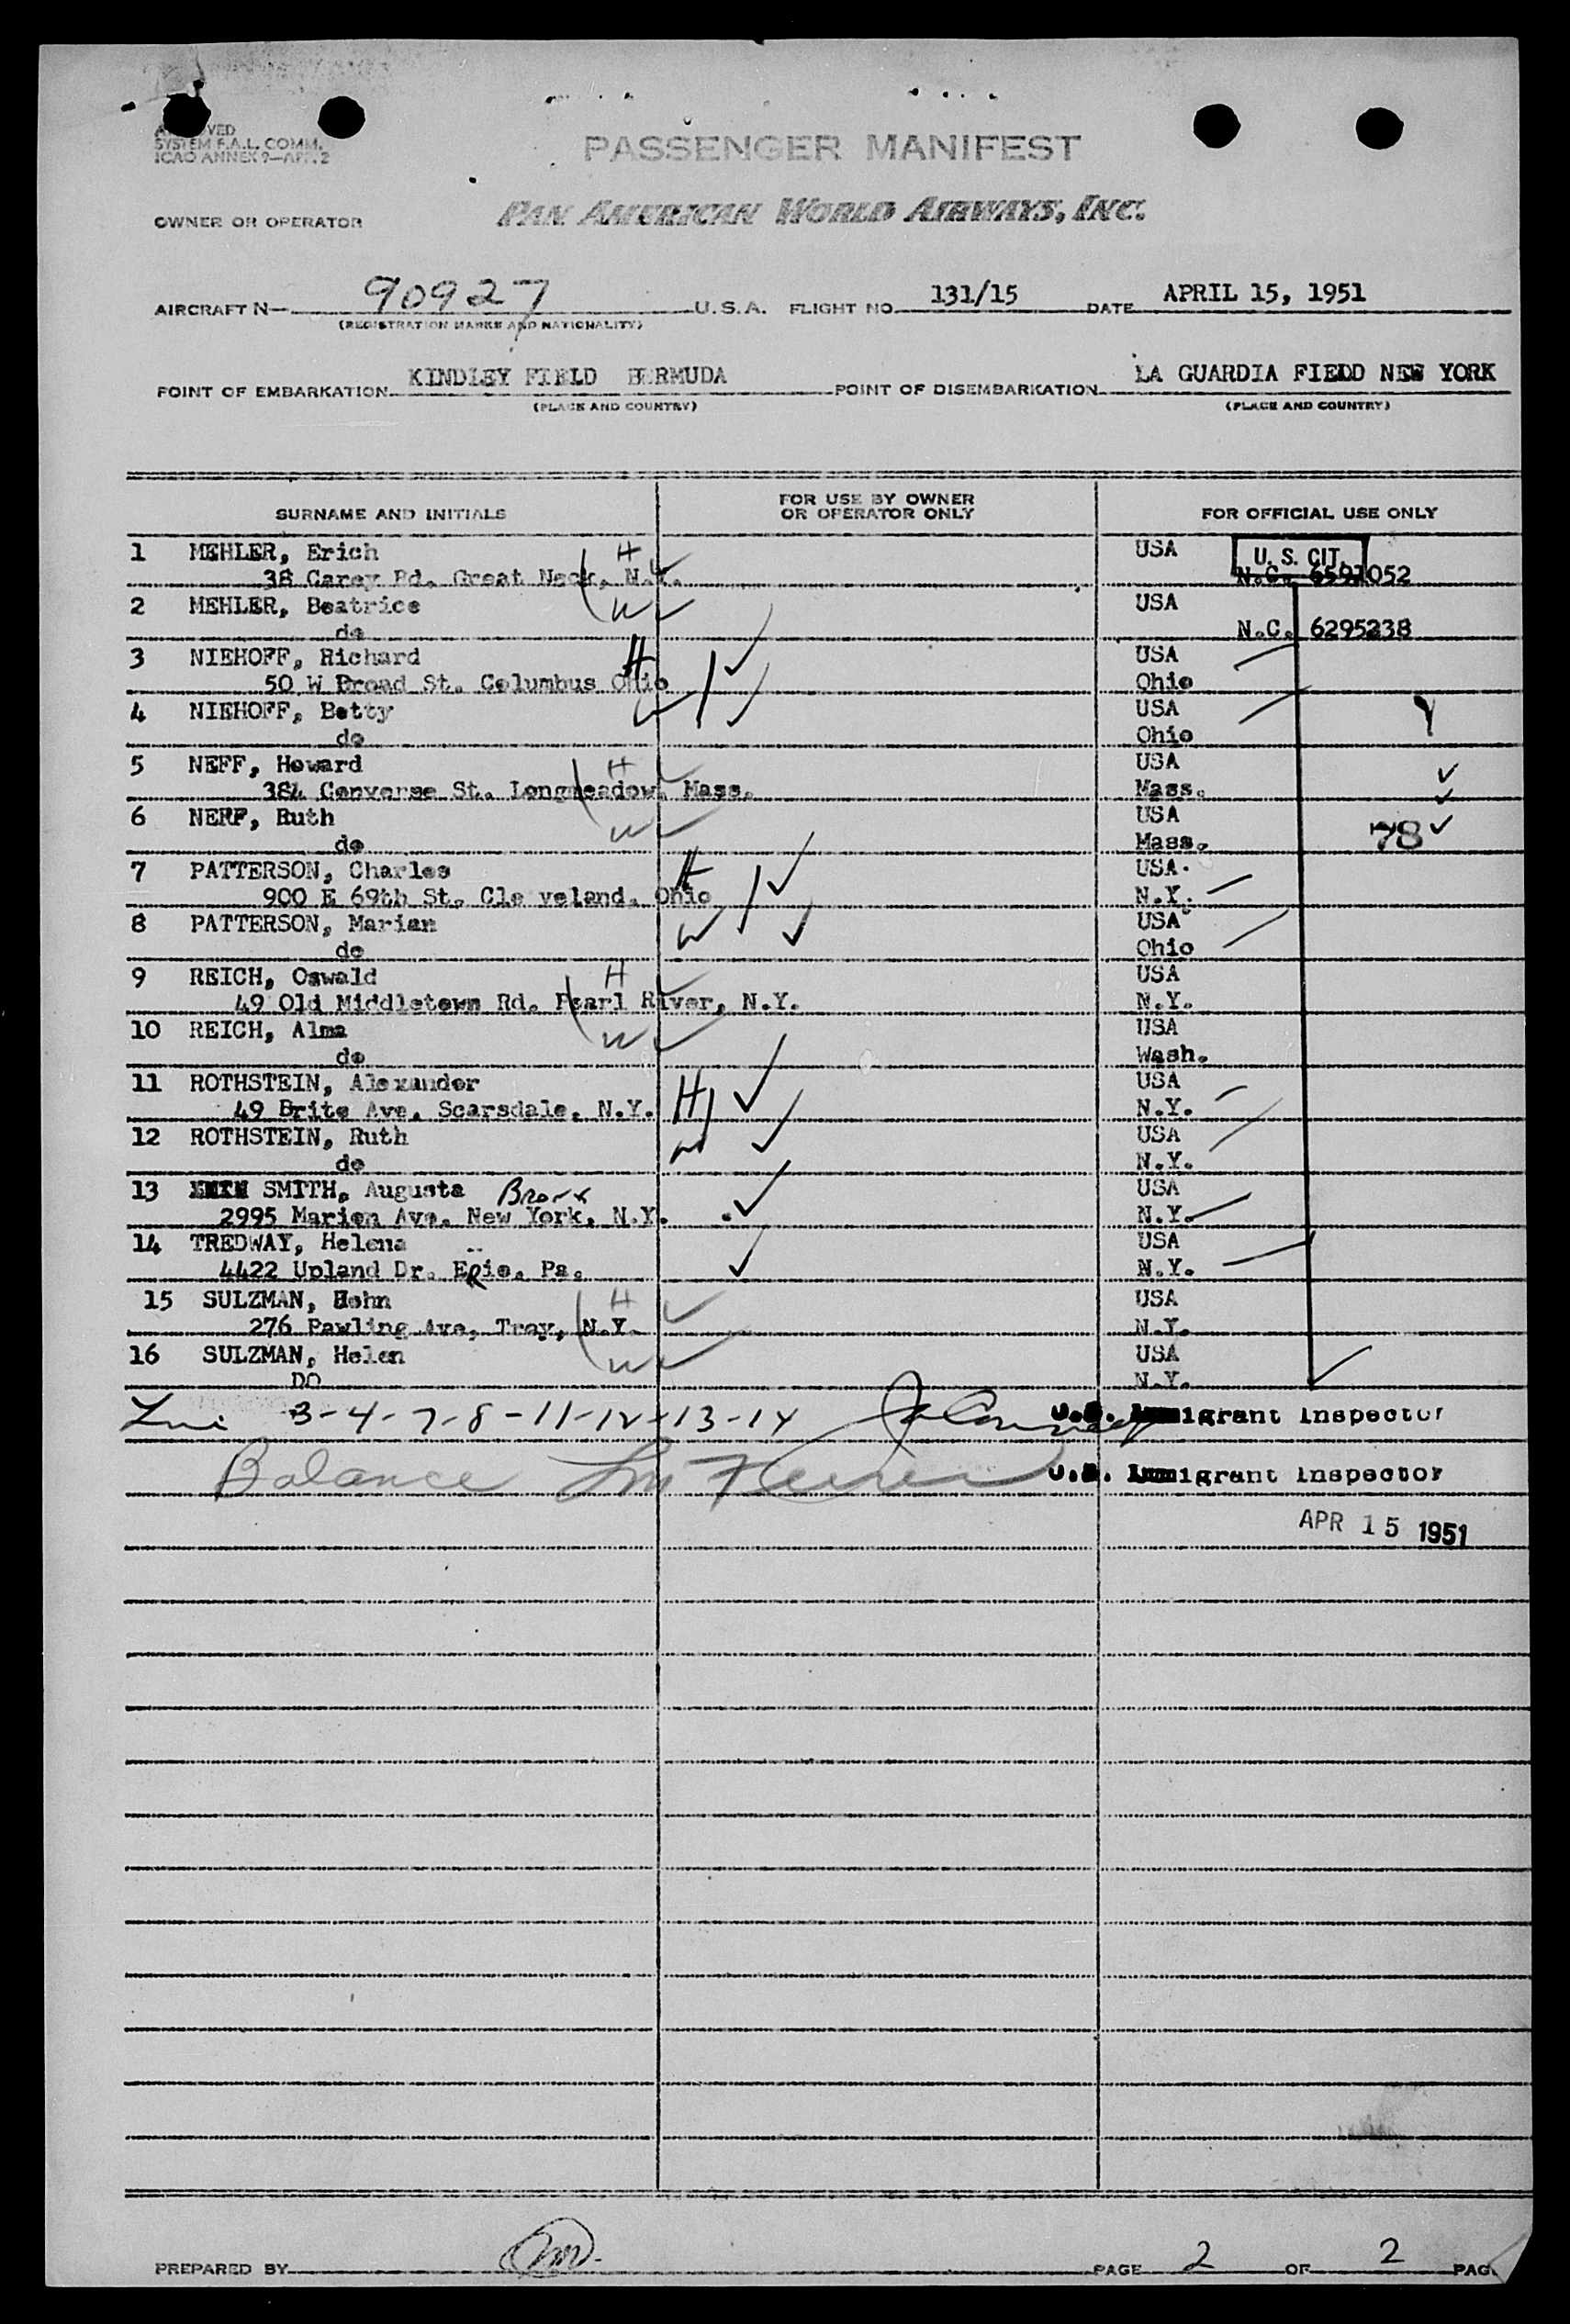 SYSTEM F.A.L. COMM.
ICAO ANNEX 9—APP. 2
PASSENGER MANIFEST
OWNER OR OPERATOR PAN AMERICAN WORLD AIRWAYS, INC.
AIRCRAFT N— 90927 U.S.A. FLIGHT NO. 131/15 DATE APRIL 15, 1951
(REGISTRATION MARKS AND NATIONALITY)
POINT OF EMBARKATION KINDLEY FIELD BERMUDA POINT OF DISEMBARKATION LA GUARDIA FIEDD NEW YORK
(PLACE AND COUNTRY) (PLACE AND COUNTRY)
SURNAME AND INITIALS FOR USE BY OWNER OR OPERATOR ONLY FOR OFFICIAL USE ONLY
1 MEHLER, Erich H USA U.S. CIT.
38 Carey Rd. Great Neck, N.Y. N.C. 6591052
2 MEHLER, Beatrice W USA
do N.C. 6295238
3 NIEHOFF, Richard H USA
50 W Broad St. Columbus Ohio Ohio
4 NIEHOFF, Betty W USA
do Ohio
5 NEFF, Howard H USA
384 Converse St. Longmeadow. Mass. Mass.
6 NEFF, Ruth W USA 78
do Mass.
7 PATTERSON, Charles H USA
900 E 69th St. Cle veland. Ohio N.Y.
8 PATTERSON, Marian W USA
do Ohio
9 REICH, Oswald H USA
49 Old Middletown Rd. Pearl River, N.Y. N.Y.
10 REICH, Alma W USA
do Wash.
11 ROTHSTEIN, Alexander H USA
49 Brite Ave. Scarsdale. N.Y. N.Y.
12 ROTHSTEIN, Ruth W USA
do N.Y.
13 SMITH, Augusta Bronx USA
2995 Marion Ave. New York. N.Y. N.Y.
14 TREDWAY, Helena USA
4422 Upland Dr. ERie. Pa. N.Y.
15 SULZMAN, John H USA
276 Pawling Ave. Troy, N.Y. N.Y.
16 SULZMAN, Helen W USA
DO N.Y.
3-4-7-8-11-12-13-14 U.S. Immigrant Inspector
Balance U.S. Immigrant Inspector
APR 15 1951
PREPARED BY PAGE 2 OF 2